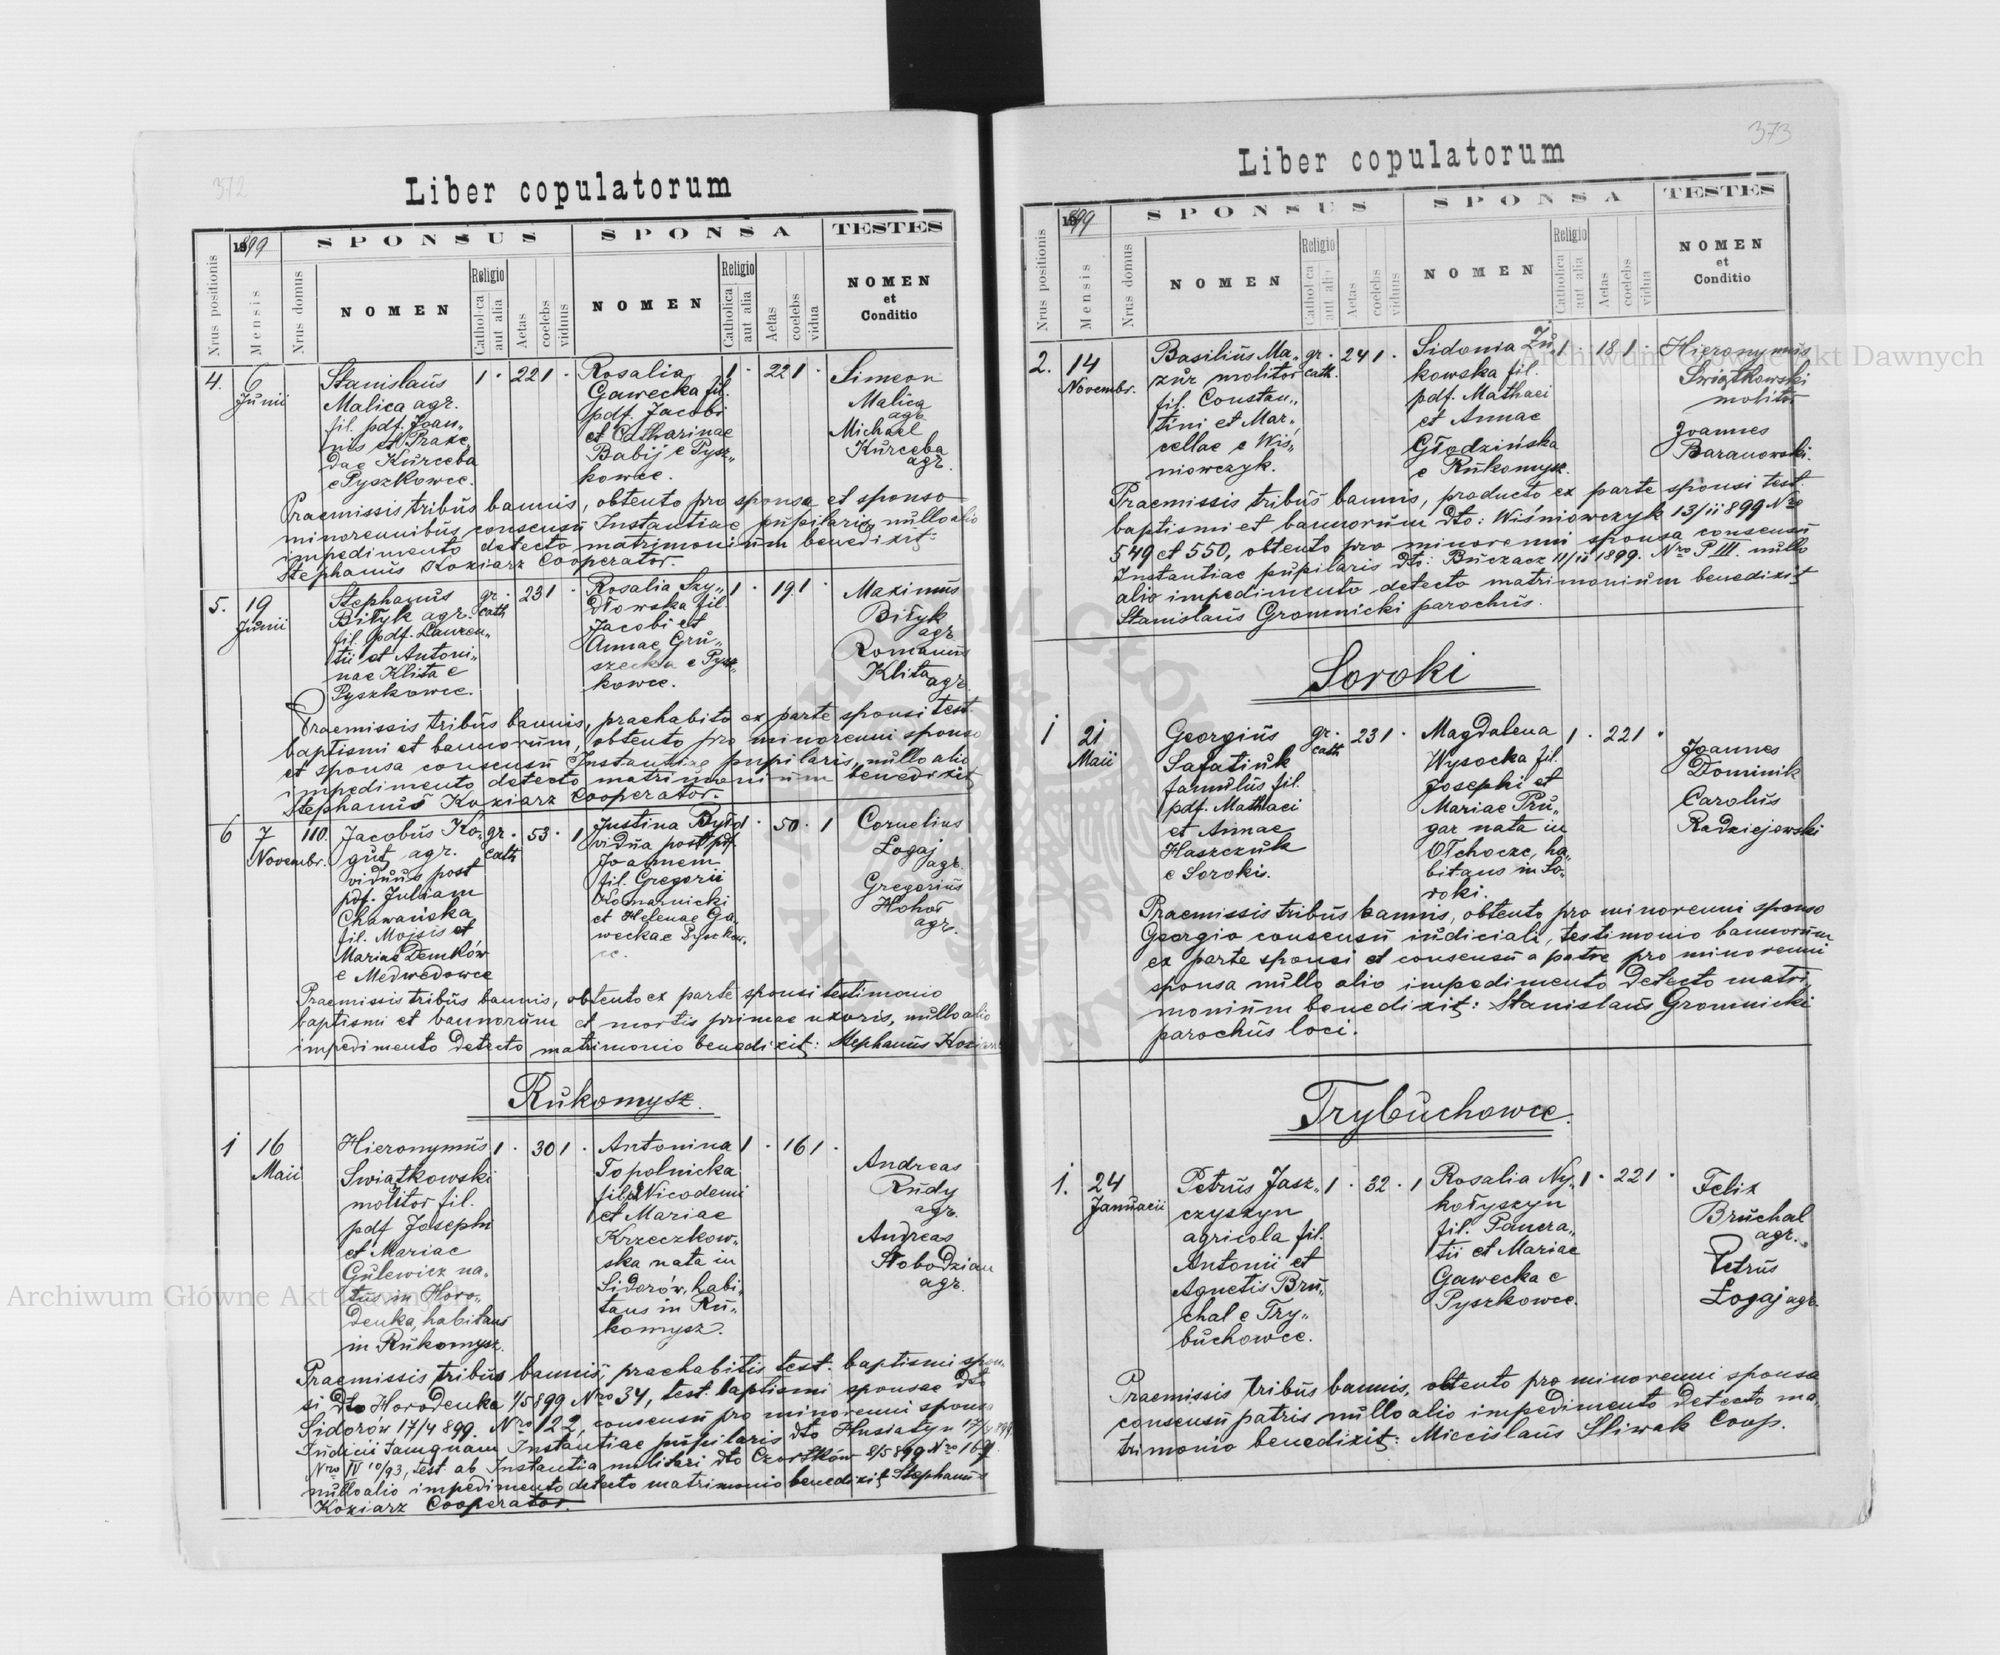 372
Liber copulatorum
Nrus positionis
1899
Mensis
Nrus domus
SPONSUS
NOMEN
Religio
Catholica
aut alia
Aetas
coelebs
viduus
SPONSA
NOMEN
Religio
Catholica
aut alia
Aetas
coelebs
vidua
TESTES
NOMEN
et
Conditio
4. 6 Junii
Stanislaus
Malica agr.
fil. pdf. Joan„
nis et Praxe„
dae Kurceba
e Pyszkowce.
1 · 22 1 ·
Rosalia
Gawecka fil.
pdf. Jacobi
et Catharinae
Babij e Pysz„
kowce.
1 · 22 1 ·
Simeon
Malica
agr.
Michael
Kurceba
agr.
Praemissis tribus bannis, obtento pro sponsa et sponso
minorennibus consensu Instantiae pupilaris, nullo alio
impedimento detecto matrimonium benedixit:
Stephanus Koziarz Cooperator.
5. 19 Junii
Stephanus
Biłyk agr.
fil. pdf. Lauren„
tii et Antoni„
nae Klita e
Pyszkowce.
gr. cath · 23 1 ·
Rosalia Szy„
dłowska fil.
Jacobi et
Annae Gru„
szecka e Pysz„
kowce.
1 · 19 1 ·
Maximus
Biłyk
agr.
Romanus
Klita agr.
Praemissis tribus bannis, praehabito ex parte sponsi test.
baptismi et bannorum, obtento pro minorenni sponso
et sponsa consensu Instantiae pupilaris, nullo alio
impedimento detecto matrimonium benedixit
Stephanus Koziarz Cooperator.
6 7 Novembr. 110.
Jacobus Ko„
gut agr.
viduus post
pdf. Juliam
Chawańska
fil. Mojsis et
Mariae Demków
e Medwedowce
gr. cath · 53 · 1
Justina
vidua post pdf.
Joannem
fil. Gregorii
Romanicki
et Helenae Ga„
weckae Pyszkow„
ce.
· 50 · 1
Cornelius
Łogaj
agr.
Gregorius
Hohoł
agr.
Praemissis tribus bannis, obtento ex parte sponsi testimonio
baptismi et bannorum et mortis primae uxoris, nullo alio
impedimento detecto matrimonio benedixit: Stephanus Koziarz
Rukomysz.
1 16 Maii
Hieronymus
Swiątkowski
molitor fil.
pdf Josephi
et Mariae
Gulewicz na„
tus in Horo„
denka, habitans
in Rukomysz.
1 · 30 1 ·
Antonina
Topolnicka
filia Nicodemi
et Mariae
Krzeczkow„
ska nata in
Sidorów, habi„
tans in Ru„
komysz.
1 · 16 1 ·
Andreas
Rudy
agr.
Andreas
Słobodzian
agr.
Praemissis tribus bannis, praehabitis test. baptismi spon„
si dto Horodenka 1/5 899 Nro 34, test. baptismi sponsae dto
Sidorów 17/4 899. Nro 122, consensu pro minorenni sponsa
Judicii tamquam Instantiae pupilaris dto Husiatyn 17/4 899
Nro IV 10/93, test. ab Instantia militari dto Czortków 2/5 899 Nro 169
nullo alio impedimento detecto matrimonio benedixit Stephanus
Koziarz Cooperator.
373
Liber copulatorum
Nrus positionis
1899
Mensis
Nrus domus
SPONSUS
NOMEN
Religio
Catholica
aut alia
Aetas
coelebs
viduus
SPONSA
NOMEN
Religio
Catholica
aut alia
Aetas
coelebs
vidua
TESTES
NOMEN
et
Conditio
2. 14 Novembr.
Basilius Ma„
zur molitor
fil. Constan„
tini et Mar„
cellae e Wiś„
niowczyk.
gr. cath. · 24 1 ·
Sidonia Żu„
kowska fil.
pdf. Mathaei
et Annae
Głodzińska
e Rukomysz.
1 · 18 1 ·
Hieronymus
Swiątkowski
molitor
Joannes
Baranowski.
Praemissis tribus bannis, producto ex parte sponsi test.
baptismi et bannorum dto: Wiśniowczyk 13/11 899 Nro
549 et 550, obtento pro minorenni sponsa consensu
Instantiae pupilaris dto: Buczacz 11/11 1899. Nro P III. nullo
alio impedimento detecto matrimonium benedixit
Stanislaus Gromnicki parochus.
Soroki
1 21 Maii
Georgius
Safatiuk
famulus fil.
pdf. Mathaei
et Annae
Kaszczuk
e Soroki.
gr. cath · 23 1 ·
Magdalena
Wysocka fil.
Josephi et
Mariae Pru„
gar nata in
Olchocze, ha„
bitans in So„
roki.
1 · 22 1 ·
Joannes
Dominik
Carolus
Radziejowski
Praemissis tribus bannis, obtento pro minorenni sponso
Georgio consensu iudiciali, testimonio bannorum
ex parte sponsi et consensu a patre pro minorenni
sponsa nullo alio impedimento detecto matri„
monium benedixit: Stanislaus Gromnicki
parochus loci.
Trybuchowce.
1. 24 Januarii
Petrus Jasz„
czyszyn
agricola fil.
Antonii et
Agnetis Bru„
chal e Try„
buchowce.
1 · 32 · 1
Rosalia Ny„
kołyszyn
fil. Pancra„
tii et Mariae
Gawecka e
Pyszkowce.
1 · 22 1 ·
Felix
Bruchal
agr.
Petrus
Łogaj agr.
Praemissis tribus bannis, obtento pro minorenni sponsa
consensu patris nullo alio impedimento detecto ma„
trimonio benedixit: Miecislaus Śliwak Coop.
Archiwum Główne Akt Dawnych
Archiwum Główne Akt Dawnych